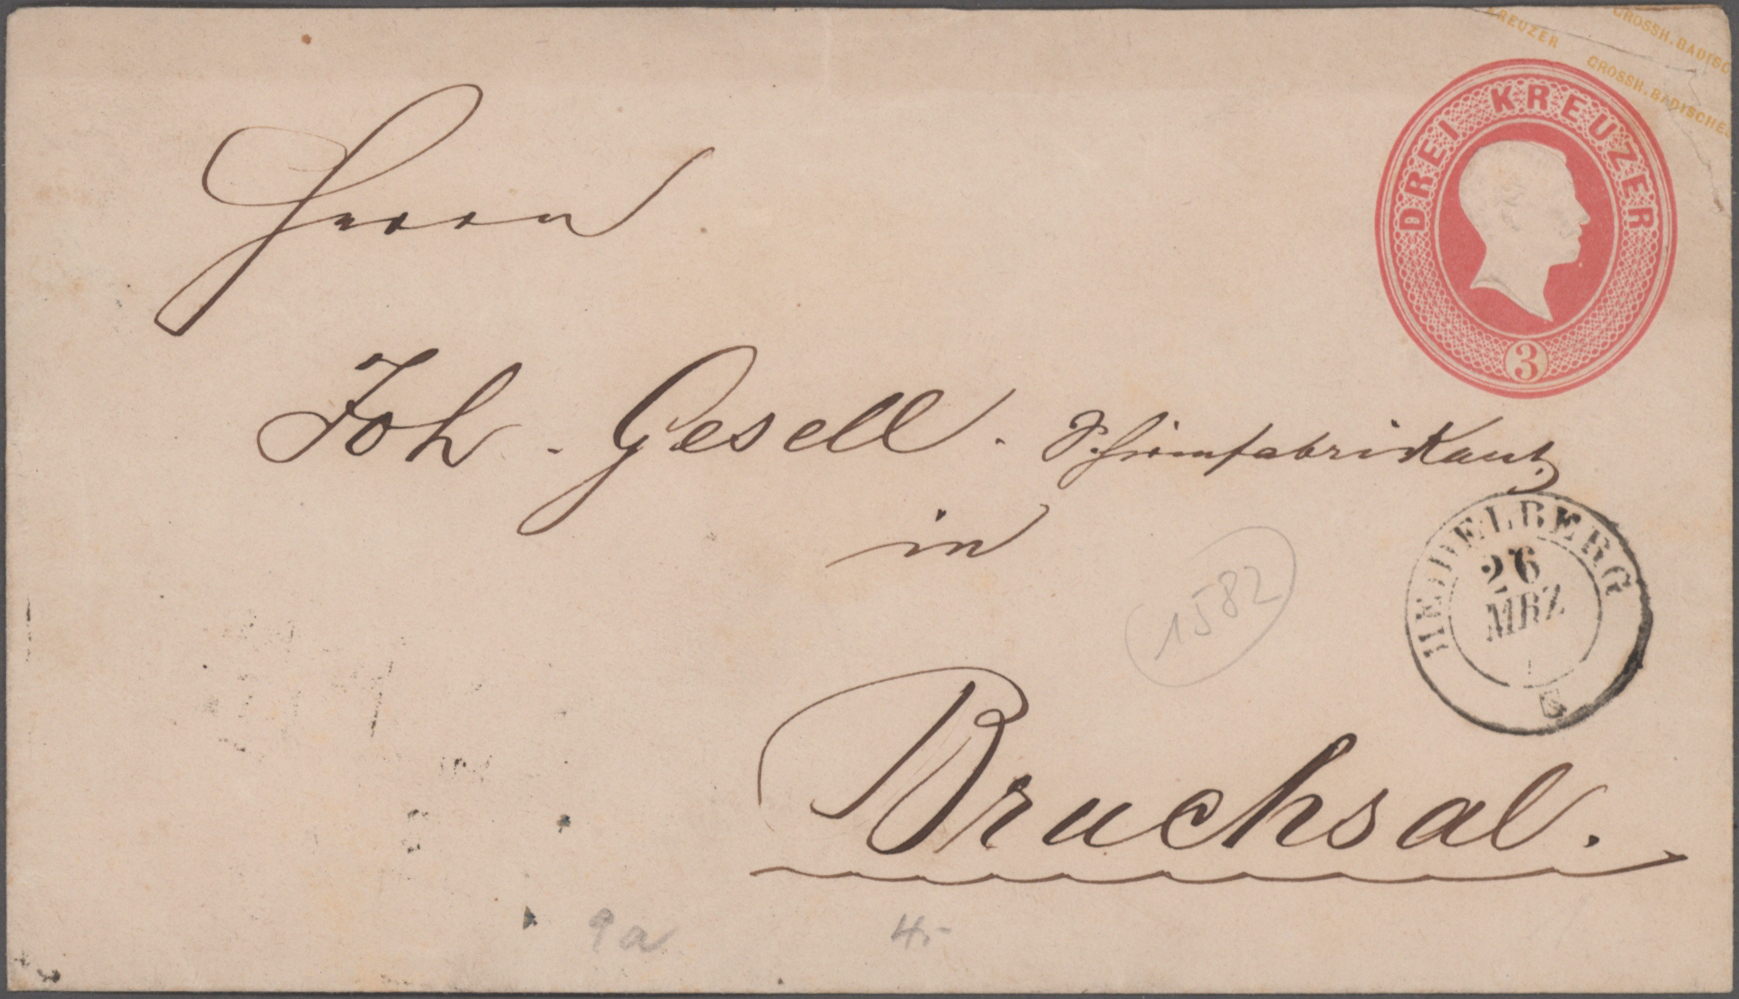 KREUZER
GROSSH. BADISC
GROSSH. BADISCHES
DREI KREUZER
3
Herrn
Joh. Gesell. Schirmfabrikant
in
Bruchsal.
HEIDELBERG
26
MRZ
1582
9a
4.-